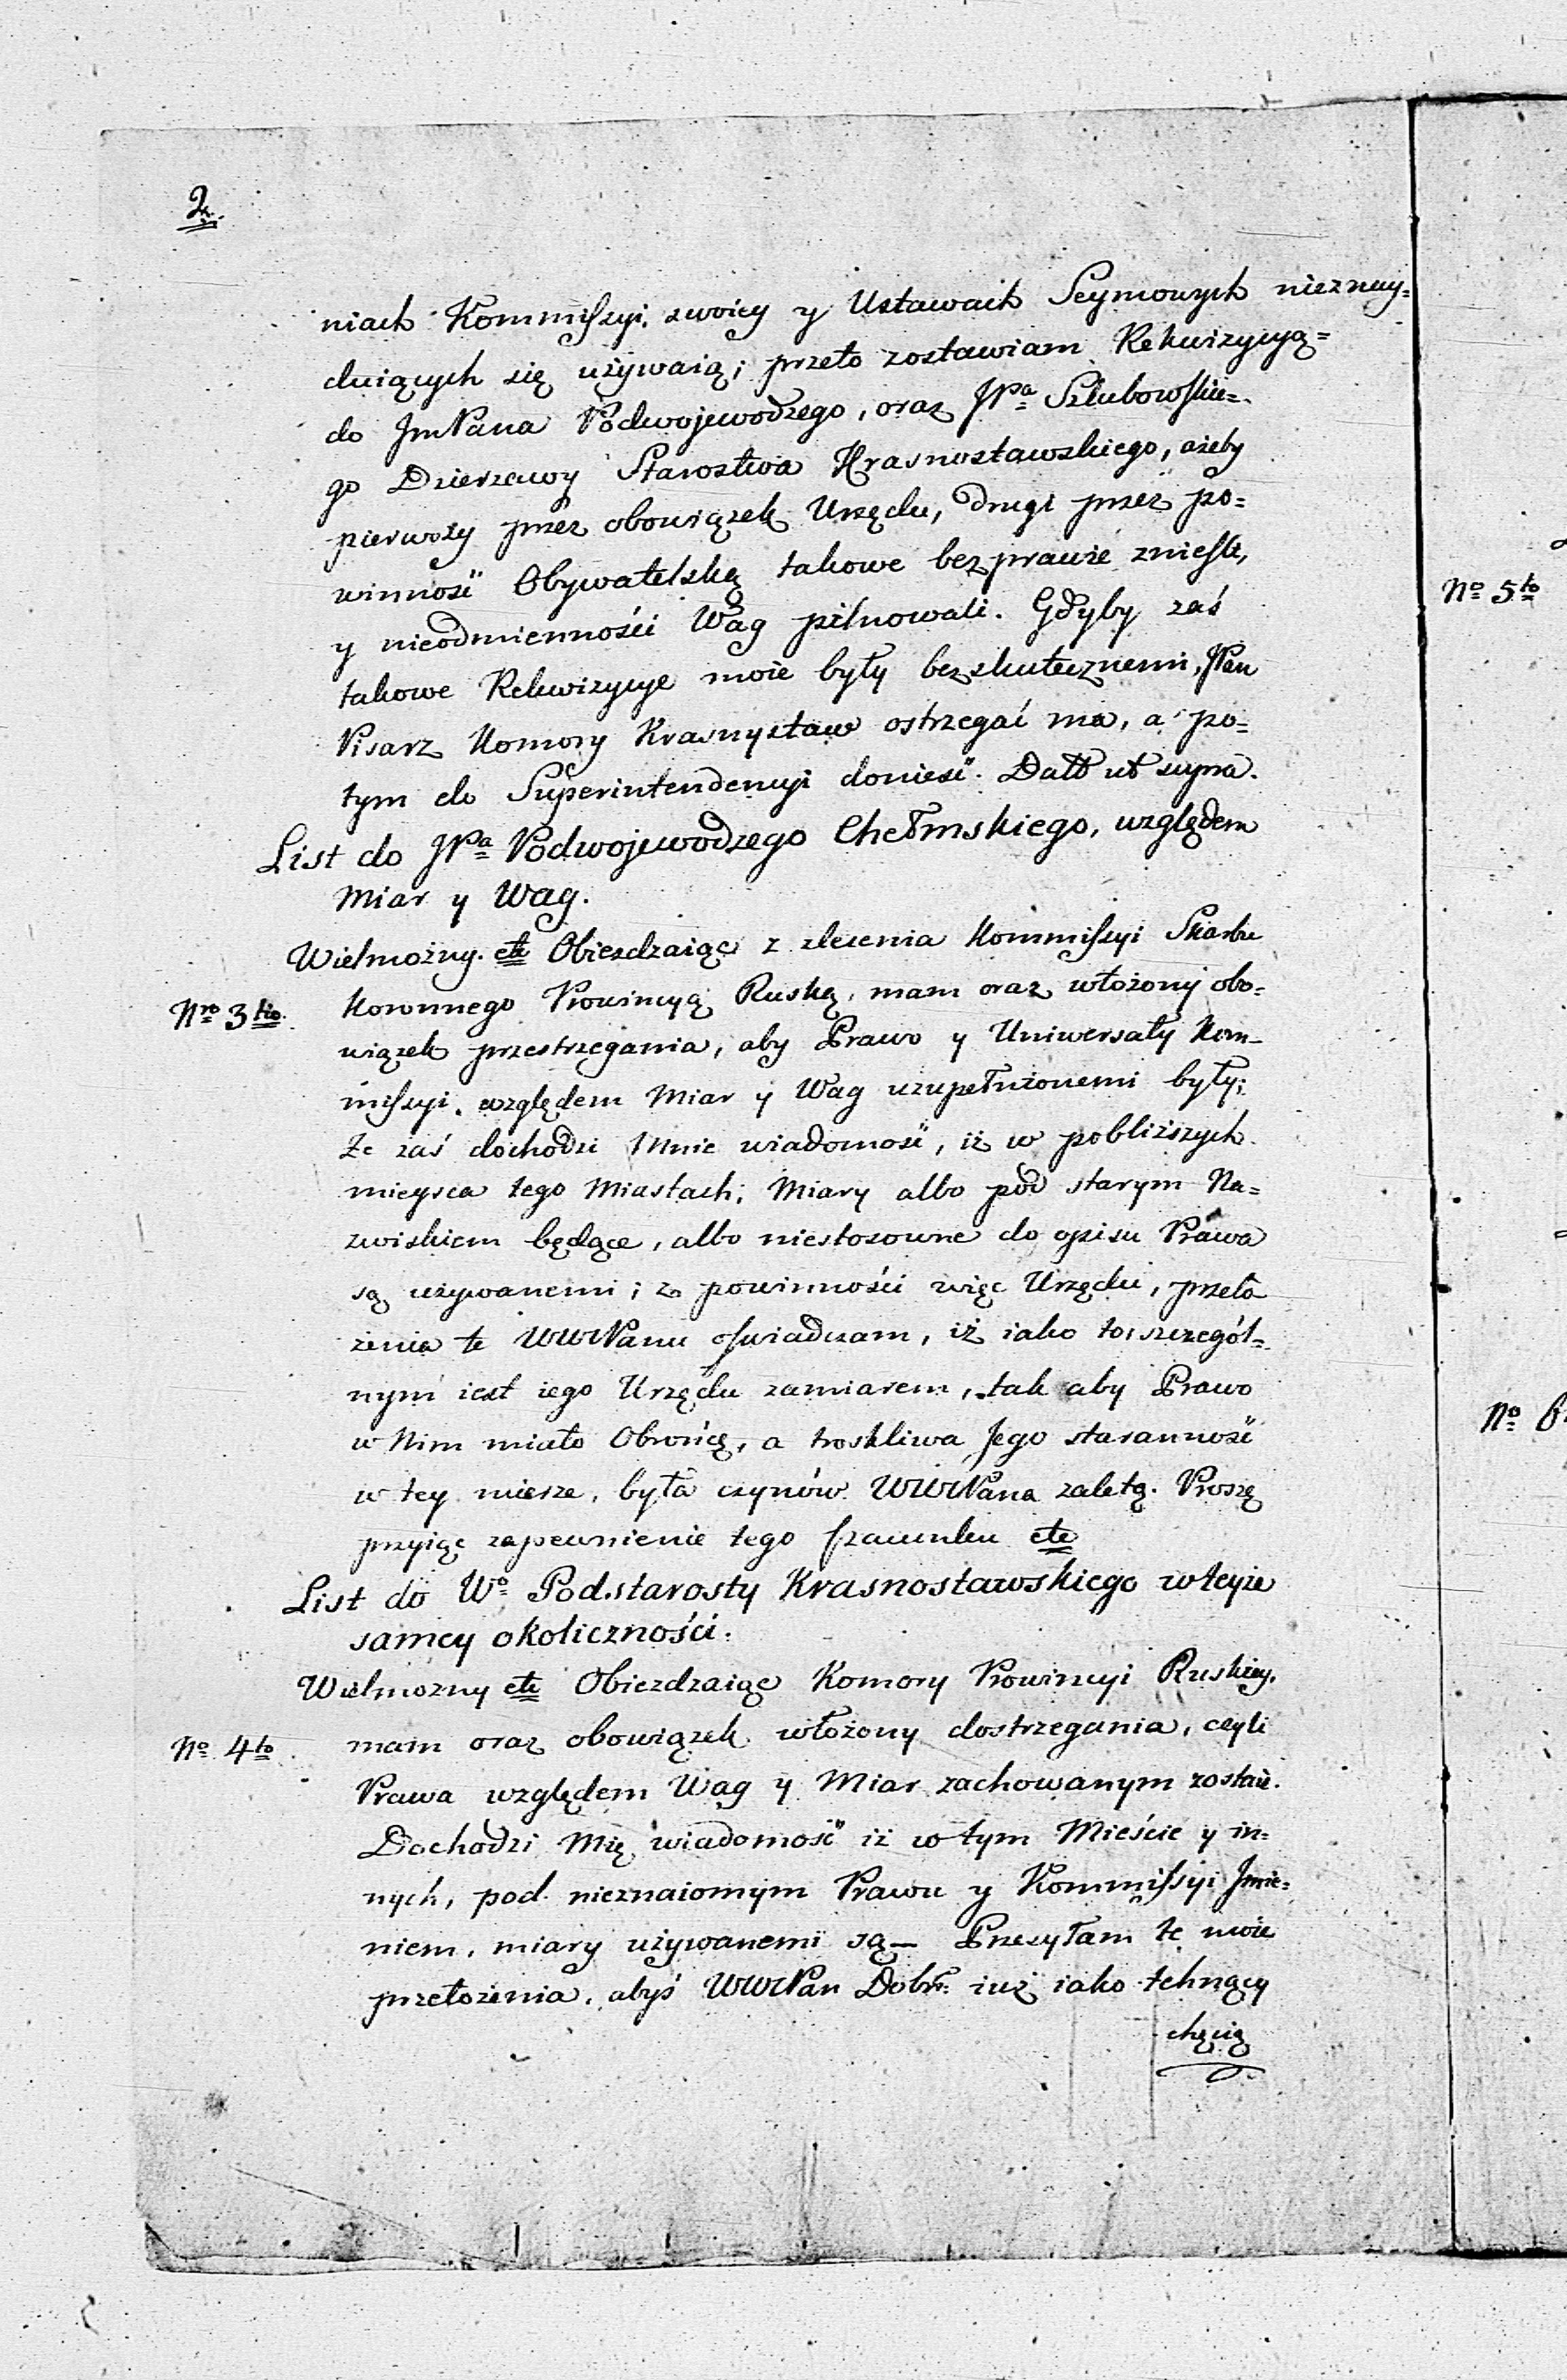 2.
niach Kommissyi swoiey y Ustawach Seymowych nieznay=
duiących się używaią; przeto zostawiam Rekwizycyą=
do JmPana Podwojewodzego, oraz JPa Szlubowskie=
go Dzierzawy Starostwa Krasnostawskiego, ażeby
pierwszy przez obowiązek Urzędu, drugi przez po=
winność Obywatelską takowe bezprawie znieśli,
y nieodmienności Wag pilnowali. Gdyby zaś
takowe Rekwizycye moie były bezskutecznemi, JPan
Pisarz Komory Krasnystaw ostrzegać ma, a po=
tym do Superintendencyi donieść. Datt ut supra.
List do JPa Podwojewodzego Chełmskiego, względem
Miar y Wag.
Wielmożny etc Obiezdzaiąc z zlecenia Kommissyi Skarbu
Nro 3tio. Koronnego Prowincyą Ruską, mam oraz włożony obo=
wiązek przestrzegania, aby Prawo y Uniwersały Kom=
missyi względem Miar y Wag uzupełnionemi były;
Że zaś dochodzi Mnie wiadomość, iż w pobliższych
mieysca tego Miastach, Miary albo pod starym Na=
zwiskiem będące, albo niestosowne do opisu Prawa
są używanemi; z powinności więc Urzędu, przeło
żenia te WWPanu oświadczam, iż iako to szczegól=
nym iest iego Urzędu zamiarem, tak aby Prawo
w Nim miało Obrońcę, a troskliwa Jego staranność
w tey mierze, była czynów WWPana zaletą. Proszę
przyiąć zapewnienie tego szacunku etc
List do Wo Podstarosty Krasnostawskiego w teyże
samey okoliczności.
Wielmozny etc Obiezdzaiąc Komory Prowincyi Ruskiey,
No 4to. mam oraz obowiązek włożony dostrzegania, czyli
Prawa względem Wag y Miar zachowanym zostaie.
Dochodzi Mię wiadomość iż w tym Mieście y in=
nych, pod nieznaiomym Prawu y Kommissyi Jmie=
niem, miary używanemi są — Przesyłam te moie
przełożenia, abyś WWPan Dobr: iuż iako tchnący
chęcią
No 5to
No 6